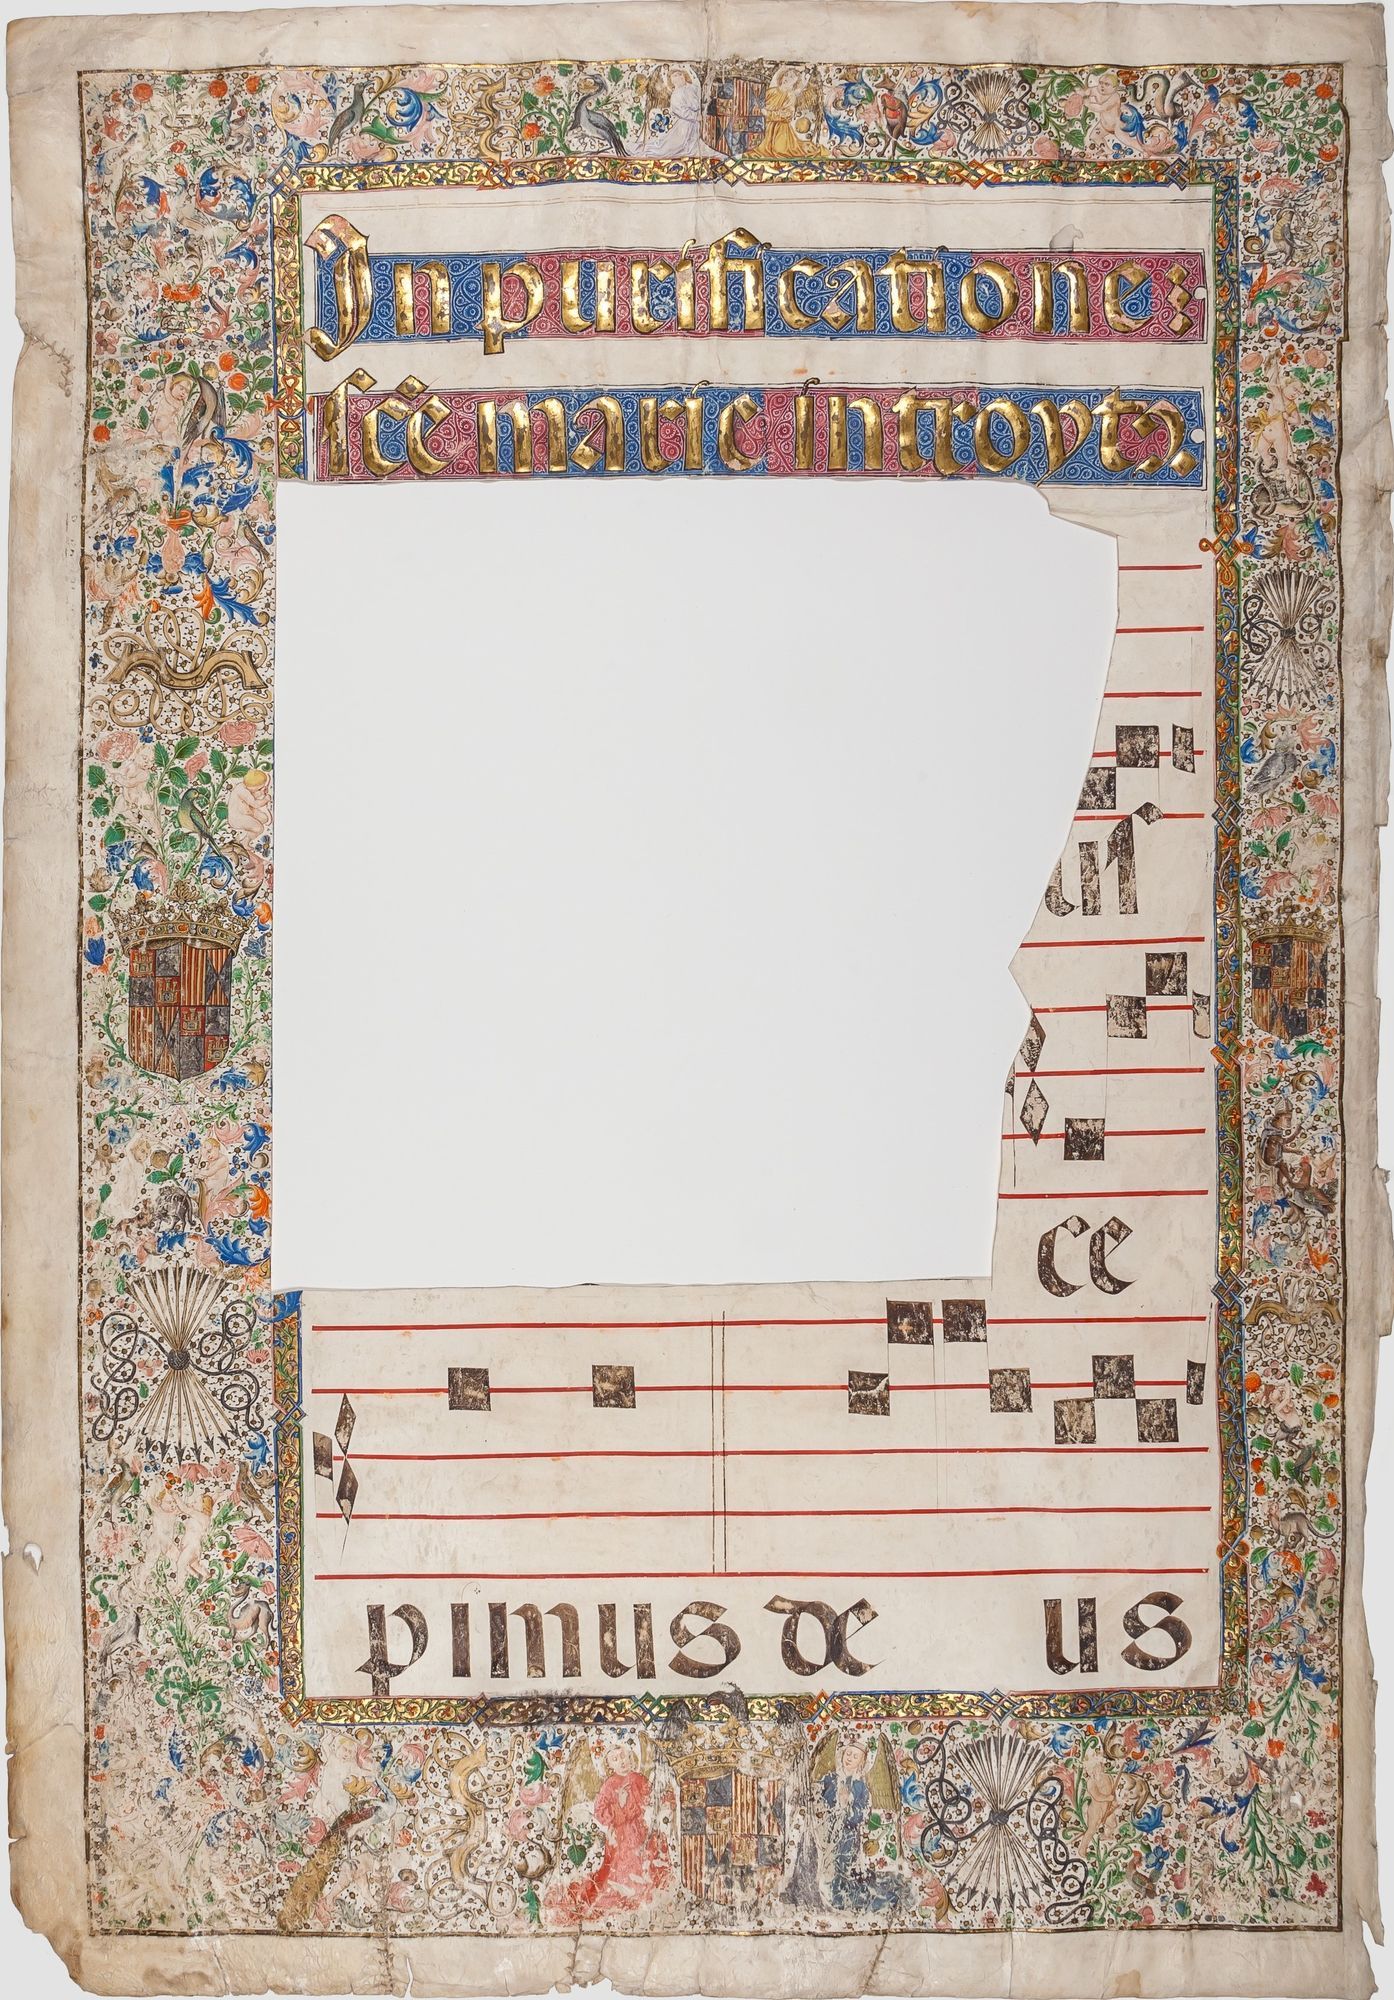 In purificatione:
sc̄e marie introyt
us
ce
pimus de us